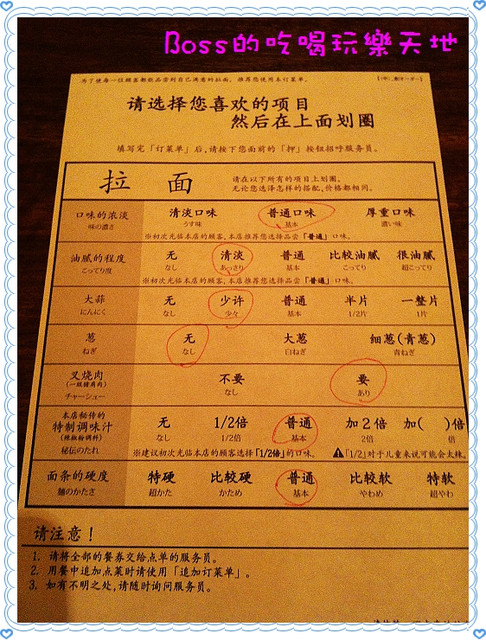 Boss的吃喝玩樂天地
为了使每一位顾客都能品尝到自己满意的拉面，推荐您使用本订菜单。
请选择您喜欢的项目
然后在上面划圈
填写完「订菜单」后，请按下您面前的「押」按钮招呼服务员。
拉 面
请在以下所有的项目上划圈。
无论您选择怎样的搭配，价格都相同。
口味的浓淡 清淡口味 普通口味 厚重口味
味の濃さ うす味 基本 濃い味
※初次光临本店的顾客，本店推荐您选择品尝「普通」口味。
油腻的程度 无 清淡 普通 比较油腻 很油腻
こってり度 なし あっさり 基本 こってり 超こってり
※初次光临本店的顾客，本店推荐您选择品尝「普通」口味。
大蒜 无 少许 普通 半片 一整片
にんにく なし 少々 基本 1/2片 1片
葱 无 大葱 细葱(青葱)
ねぎ なし 白ねぎ 青ねぎ
叉烧肉 不要 要
(一级猪肩肉)
チャーシュー なし あり
本店秘传的
特制调味汁 无 1/2倍 普通 加2倍 加( )倍
(辣椒粉调料)
秘伝のたれ なし 1/2倍 基本 2倍 倍
※建议初次光临本店的顾客选择「1/2倍」的口味。 ▲「1/2」对于儿童来说可能会太辣。
面条的硬度 特硬 比较硬 普通 比较软 特软
麺のかたさ 超かた かため 基本 やわめ 超やわ
请注意！
1. 请将全部的餐券交给点单的服务员。
2. 用餐中追加点菜时请使用「追加订菜单」。
3. 如有不明之处，请随时询问服务员。